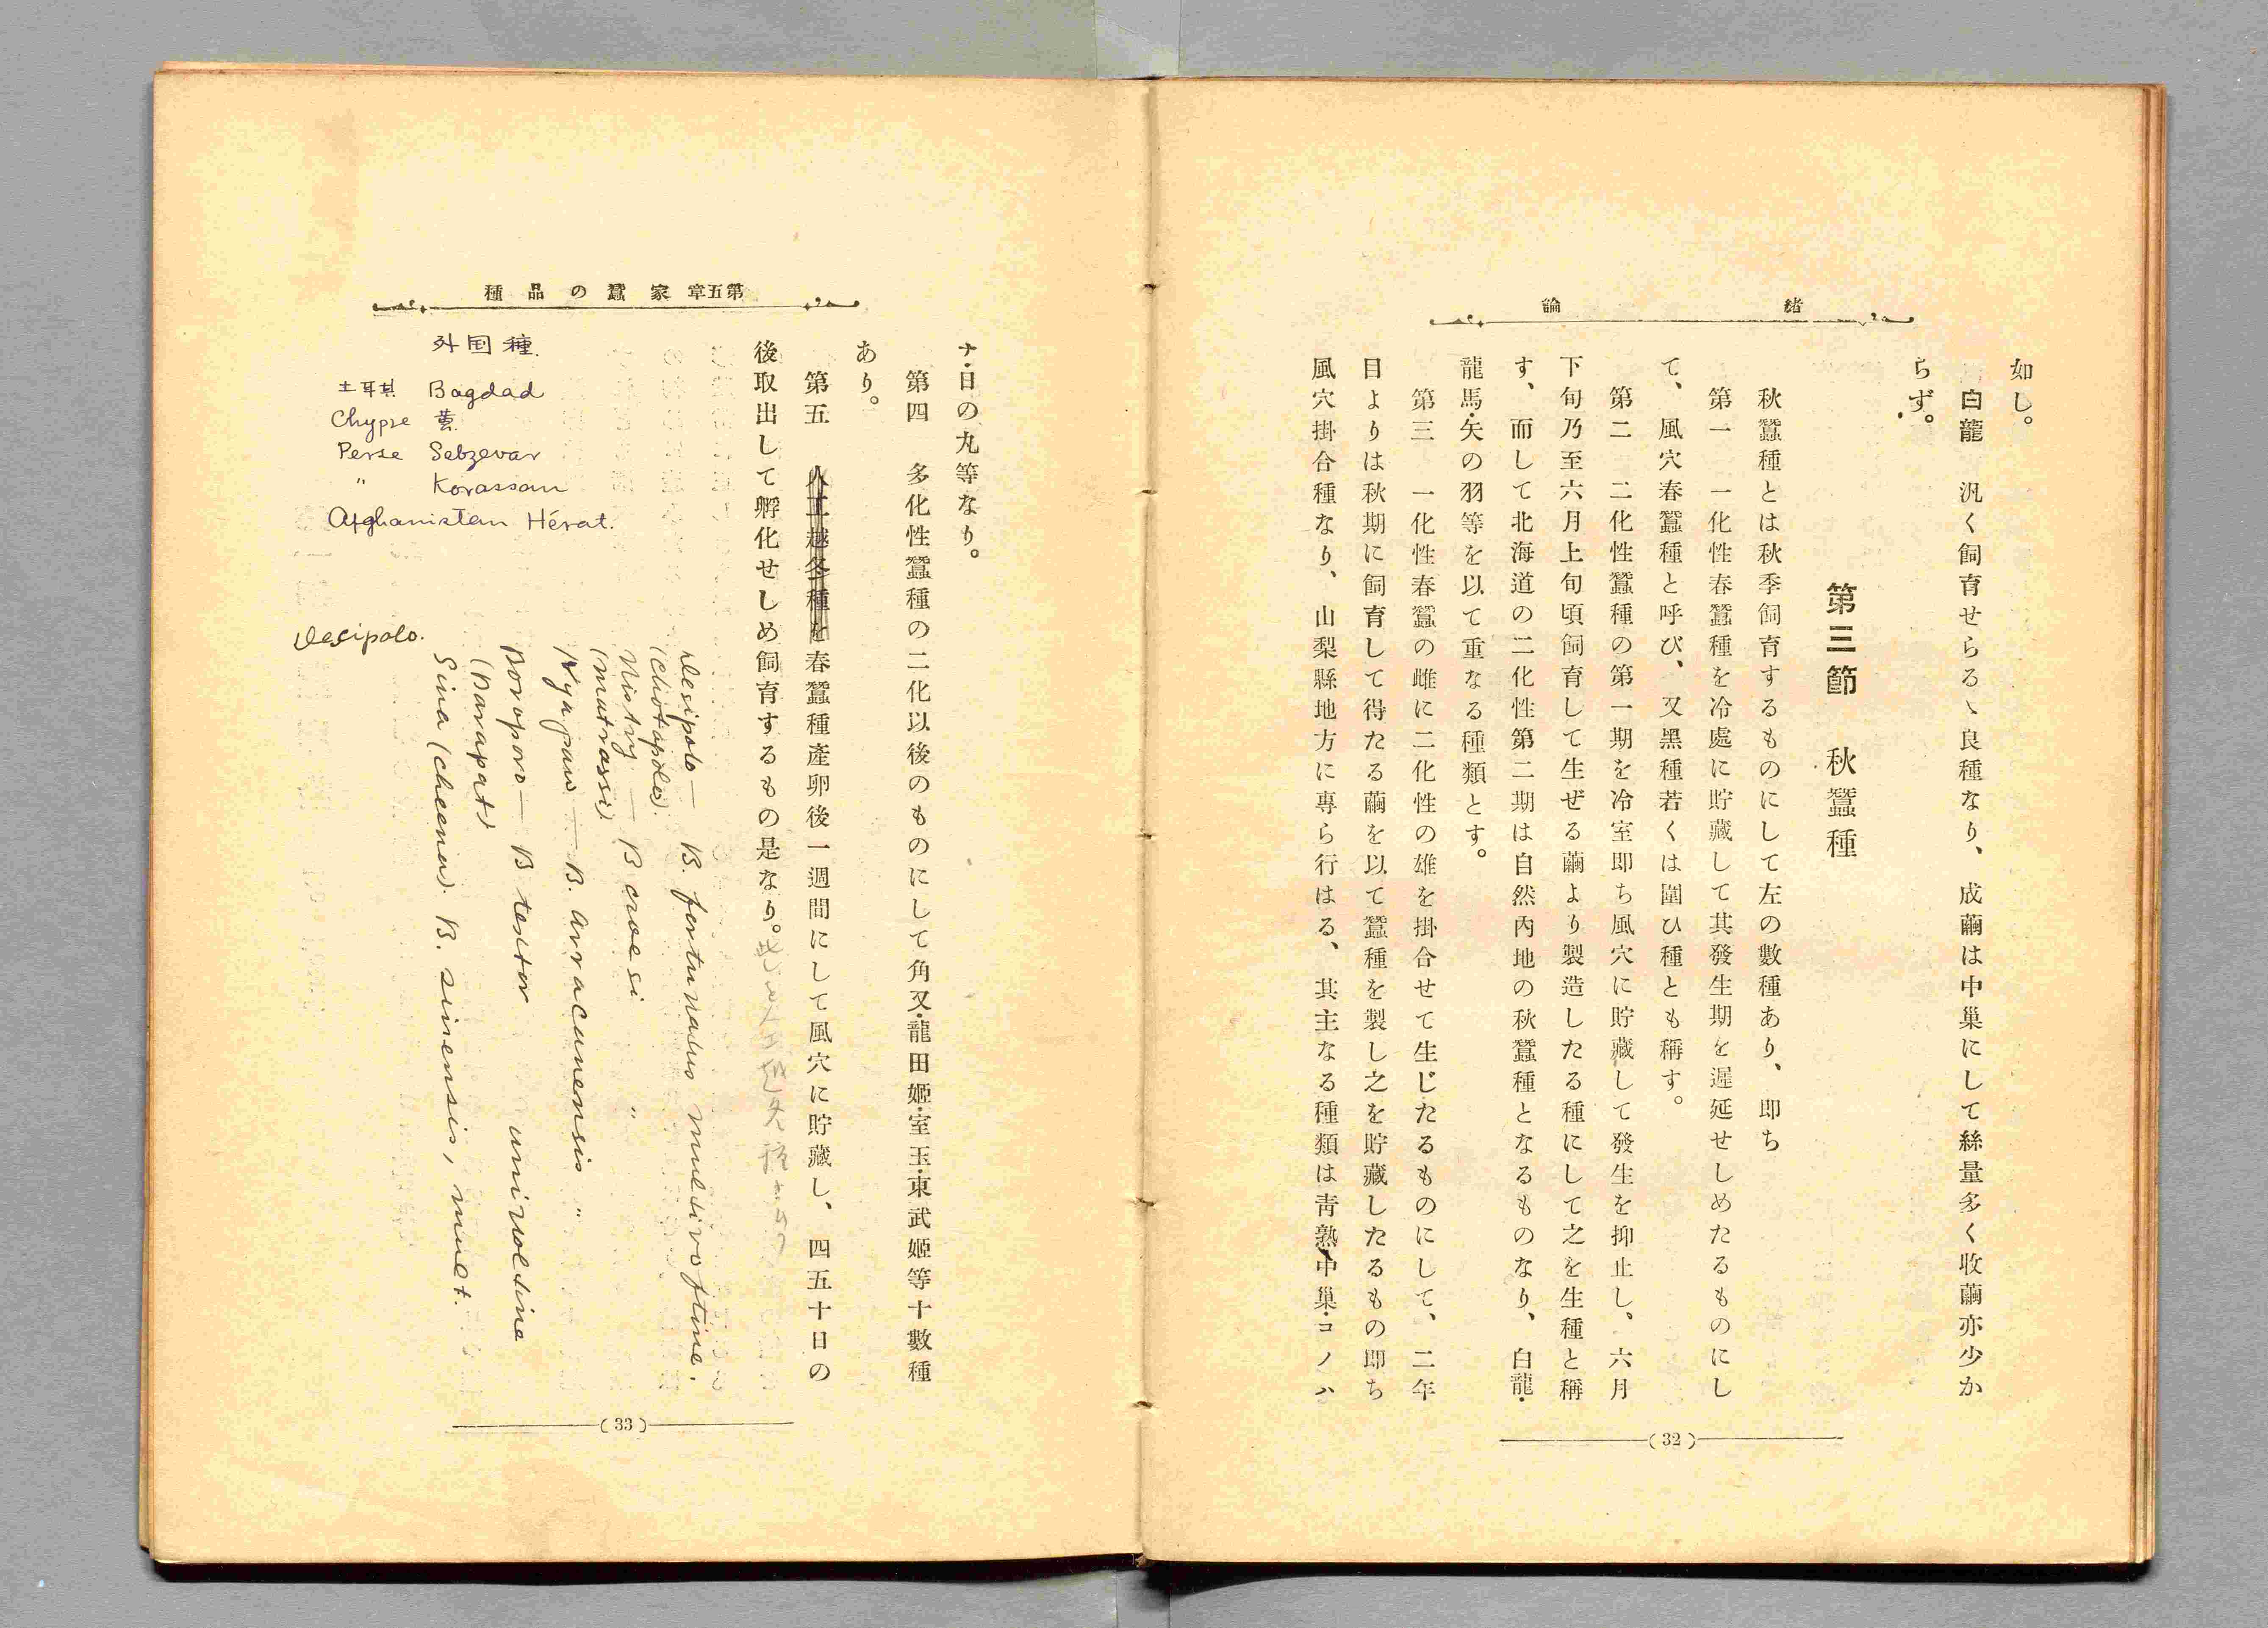 緒論
如し。
白龍　汎く飼育せらるゝ良種なり、成繭は中巢にして絲量多く收繭亦少か
らず。
第三節　秋蠶種
秋蠶種とは秋季飼育するものにして左の數種あり、即ち
第一　一化性春蠶種を冷處に貯藏して其發生期を遲延せしめたるものにし
て、風穴春蠶種と呼び、又黑種若くは圍ひ種とも稱す。
第二　二化性蠶種の第一期を冷室即ち風穴に貯藏して發生を抑止し、六月
下旬乃至六月上旬頃飼育して生ぜる繭より製造したる種にして之を生種と稱
す、而して北海道の二化性第二期は自然內地の秋蠶種となるものなり、白龍・
龍馬・矢の羽等を以て重なる種類とす。
第三　一化性春蠶の雌に二化性の雄を掛合せて生じたるものにして、二年
目よりは秋期に飼育して得たる繭を以て蠶種を製し之を貯藏したるもの即ち
風穴掛合種なり、山梨縣地方に專ら行はる、其主なる種類は靑熟・中巢・コノハ
(32)
第五章　家蠶の品種
ナ・日の丸等なり。
第四　多化性蠶種の二化以後のものにして角又・龍田姬・室玉・東武姬等十數種
あり。
第五　人工越冬種を春蠶種產卵後一週間にして風穴に貯藏し、四五十日の
後取出して孵化せしめ飼育するもの是なり。
外国種
土耳其 Bagdad
Chypre 黄
Perse Sebzevar
〃 Korassan
Afghanistan Hérat.
Desipolo.
Desipolo — B. fortunatus multivoltine.
(Chotapolo).
Nistry — B croesi 〃
(mutrassi)
Nyapaw — B. arracanensis 〃
Boroporo — B textor univoltine
(Barapat)
Sina (cheena). B. sinensis, mult.
(33)